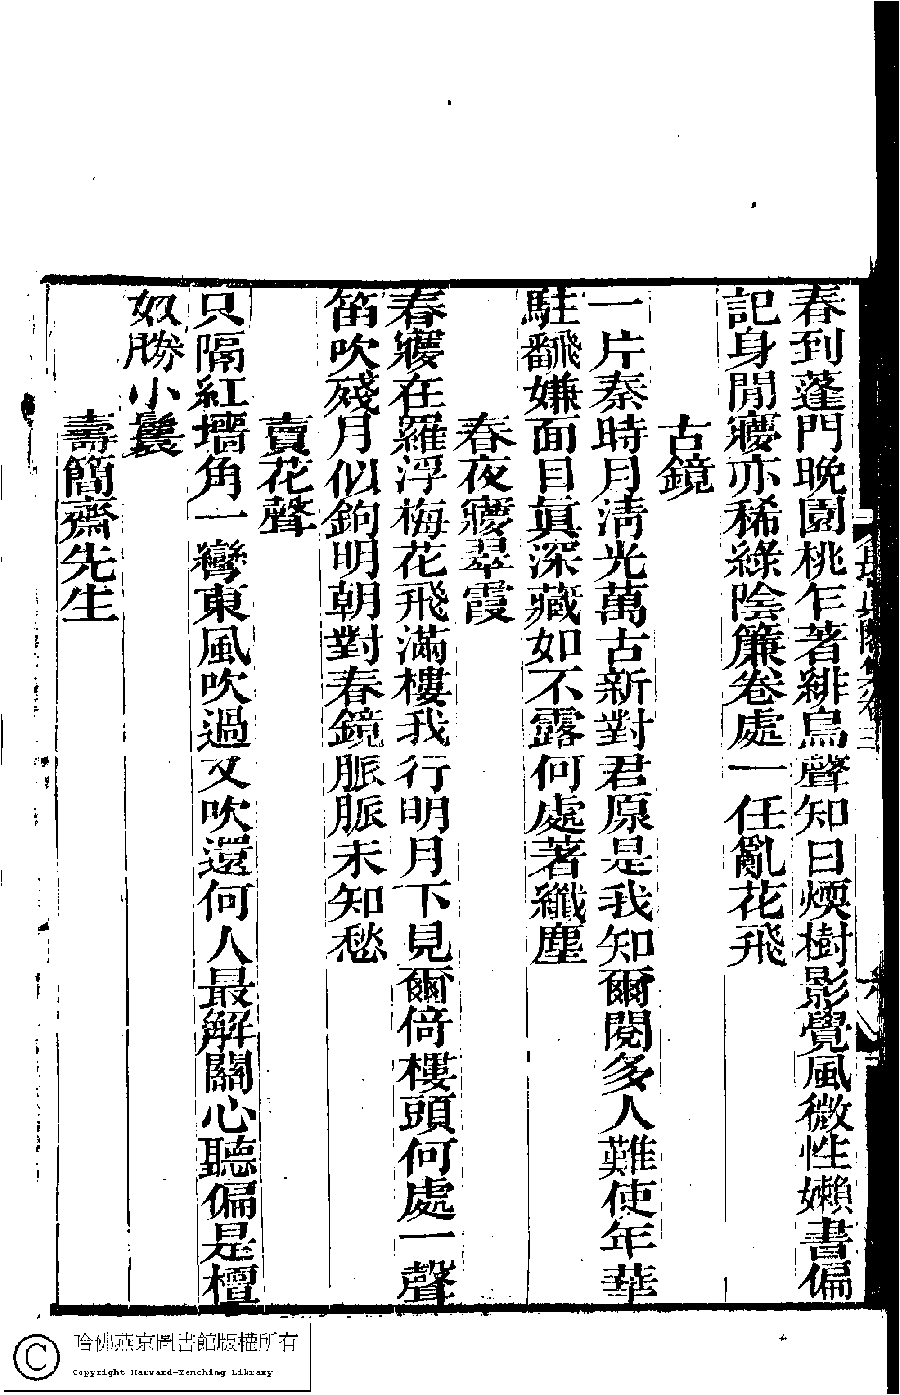 春到蓬門晚園桃乍著緋鳥聲知日煗樹影覺風微性嬾書偏
記身閒㝱亦稀綠陰簾卷處一任亂花飛
古鏡
一片秦時月清光萬古新對君原是我知爾閱多人難使年華
駐翻嫌面目眞深藏如不露何處著纖塵
春夜㝱翠霞
春㝱在羅浮梅花飛滿樓我行明月下見爾倚樓頭何處一聲
笛吹殘月似鉤明朝對春鏡脈脈未知愁
賣花聲
只隔紅墻角一彎東風吹過又吹還何人最解關心聽偏是檀
奴勝小鬟
壽簡齋先生
卷三
哈佛燕京圖書館版權所有
Copyright Harvard-Yenching Library